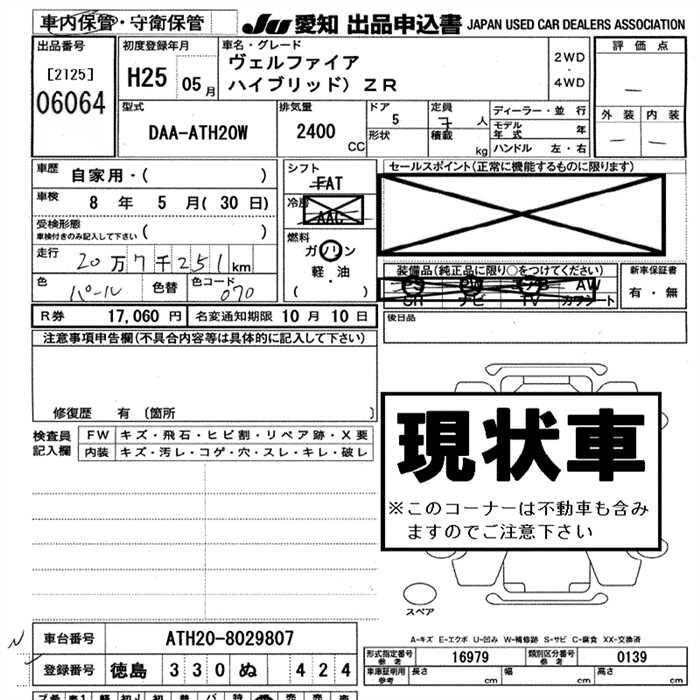 車内保管・守衛保管
JU 愛知 出品申込書 JAPAN USED CAR DEALERS ASSOCIATION
出品番号
[2125]
06064
初度登録年月
H25 05 月
車名・グレード
ヴェルファイア
ハイブリッド) ZR
2WD
・
4WD
評価点
—
外装 内装
— —
型式
DAA-ATH20W
排気量
2400 CC
ドア
5
形状
定員
7 人
積載 kg
ディーラー・並行
モデル年式 年
ハンドル 左・右
車歴 自家用・( )
車検 8 年 5 月( 30 日)
受検形態
車検付きのみ記入して下さい ( )
走行 20万7千251 km
色 パール 色替 色コード 070
シフト
FAT
冷房
AAC
燃料
ガソリン
軽・油
( )
セールスポイント(正常に機能するものに限ります)
装備品(純正品に限り○をつけてください)
SR ナビ TV カワシート
AW
新車保証書
有・無
R券 17,060 円 名変通知期限 10 月 10 日
後日品
注意事項申告欄(不具合内容等は具体的に記入して下さい)
修復歴 有 〔箇所 〕
検査員記入欄
FW キズ・飛石・ヒビ割・リペア跡・X要
内装 キズ・汚レ・コゲ・穴・スレ・キレ・破レ
現状車
※このコーナーは不動車も含み
ますのでご注意下さい
スペア
A-キズ E-エクボ U-凹み W-補修跡 S-サビ C-腐食 XX-交換済
車台番号 ATH20-8029807
登録番号 徳島 330 ぬ 424
型式指定番号 参考 16979 類別区分番号 参考 0139
車庫証明用 参考 長さ cm 幅 cm 高さ cm